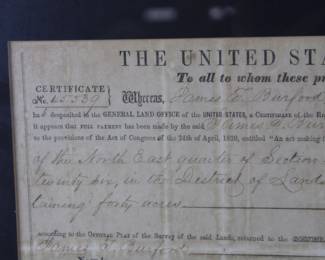 THE UNITED STA
To all to whom these pr
CERTIFICATE
No. 45539
Whereas, James E. Burford
ha deposited in the GENERAL LAND OFFICE of the UNITED STATES, a CERTIFICATE of the RE
it appears that FULL PAYMENT has been made by the said James E. Bur
to the provisions of the Act of Congress of the 24th of April, 1820, entitled "An act making
of the North East quarter of Section
twenty six, in the District of Lands
taining forty acres
according to the OFFICIAL PLAT of the Survey of the said Lands, returned to the GENERAL
James E. Burford
Now